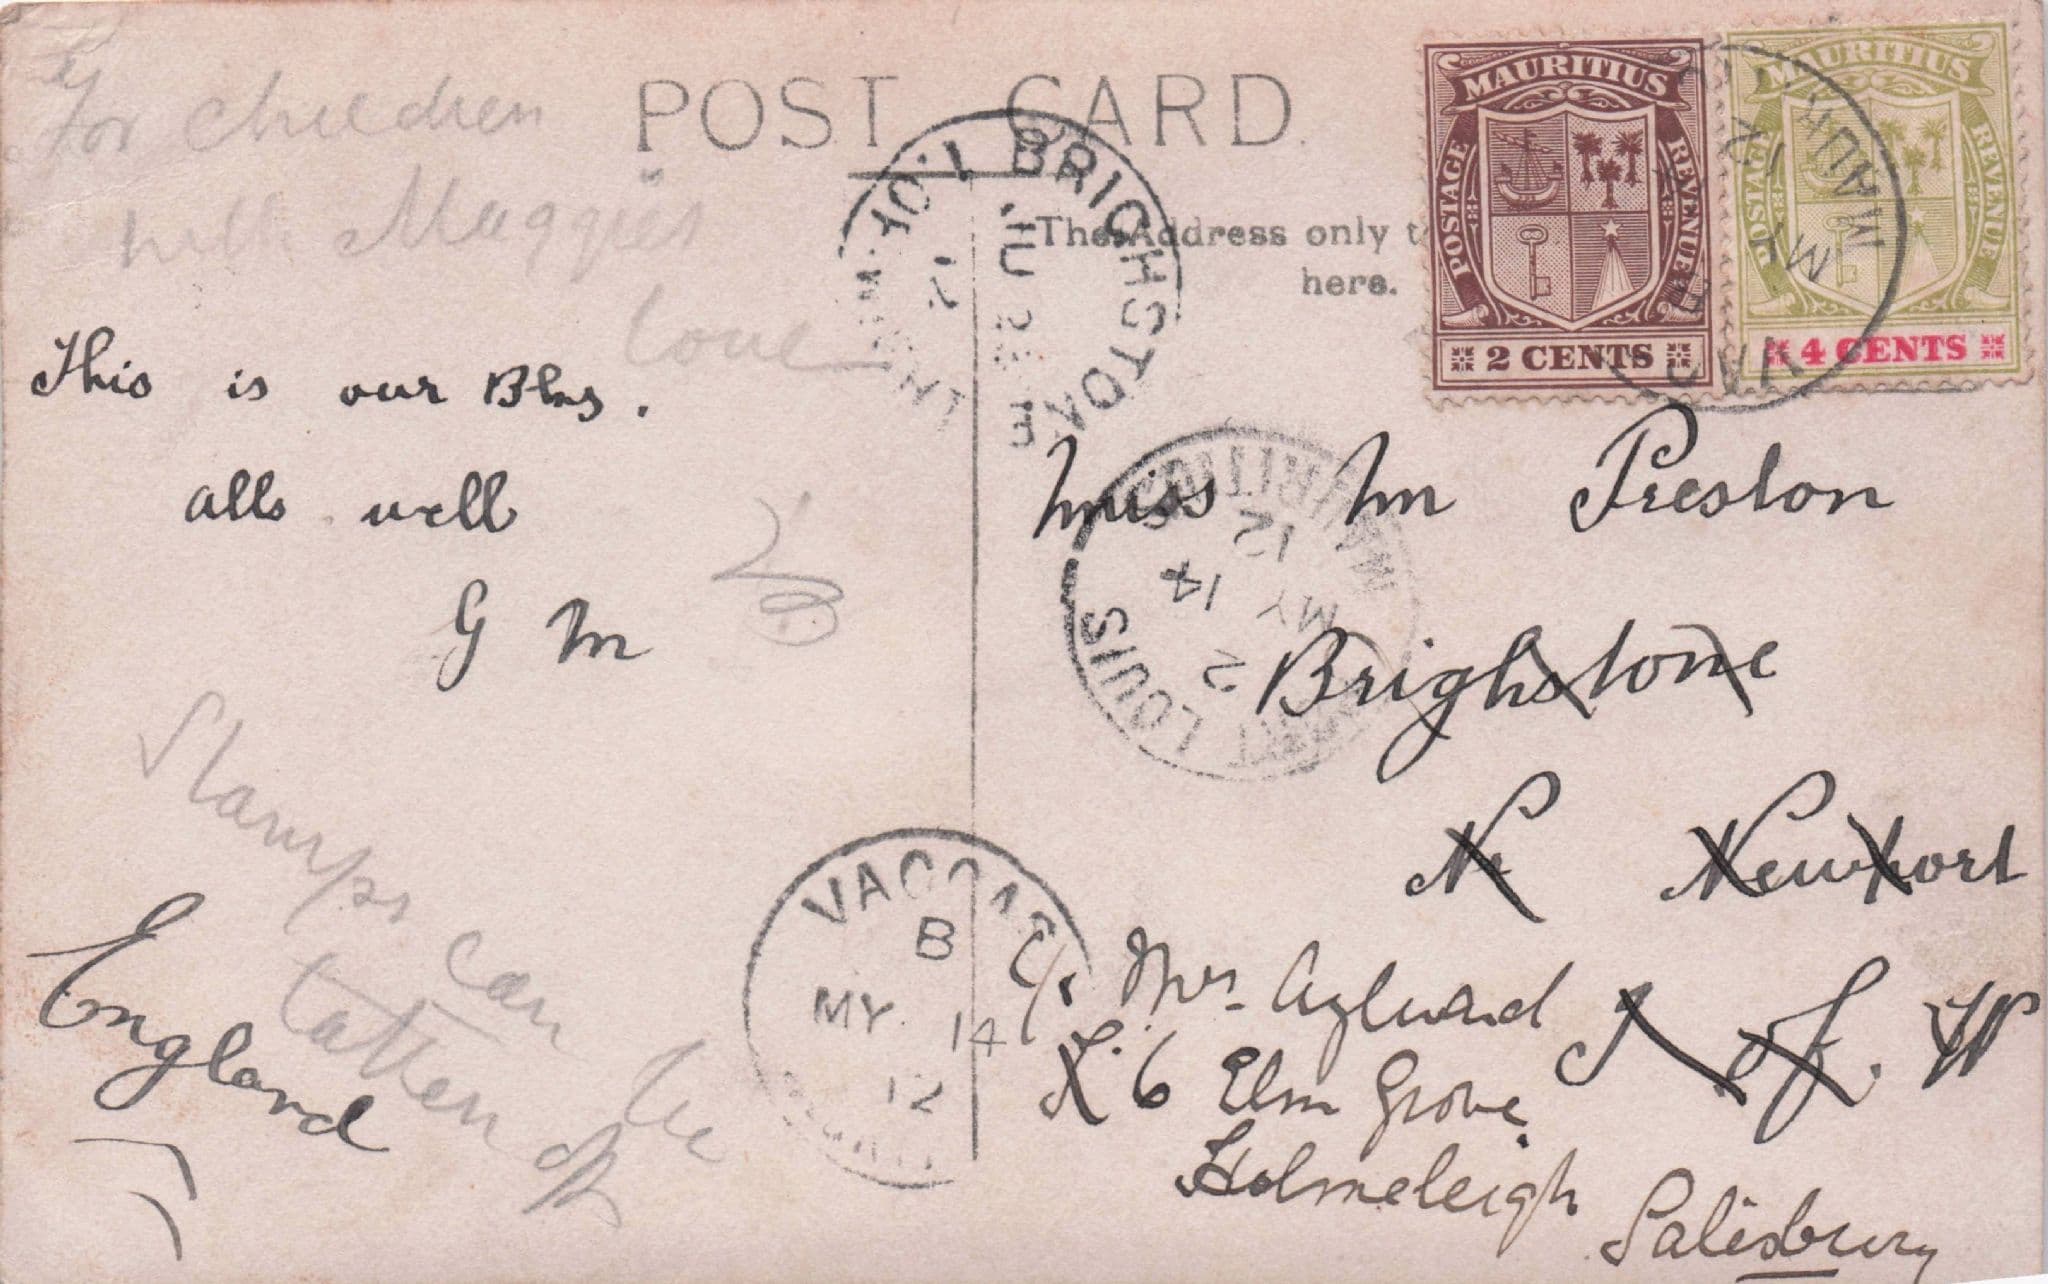 For children
with Maggies
love
POST CARD.
The Address only to
here.
MAURITIUS
POSTAGE
REVENUE
2 CENTS
MAURITIUS
POSTAGE
REVENUE
4 CENTS
BRIGHSTONE
JU
12
MAURITIUS
12
MY 14
2
LOUIS
MAU
12
MY
VAC
This is our Blns.
alls well
G M
Miss M Preston
Brighstone
Nr Newport
I of W
C/o Mrs Aylward
6 Elm Grove,
Holmeleigh
Salisbury
England
Stamps can be
taken off
VACOAS
B
MY 14
12